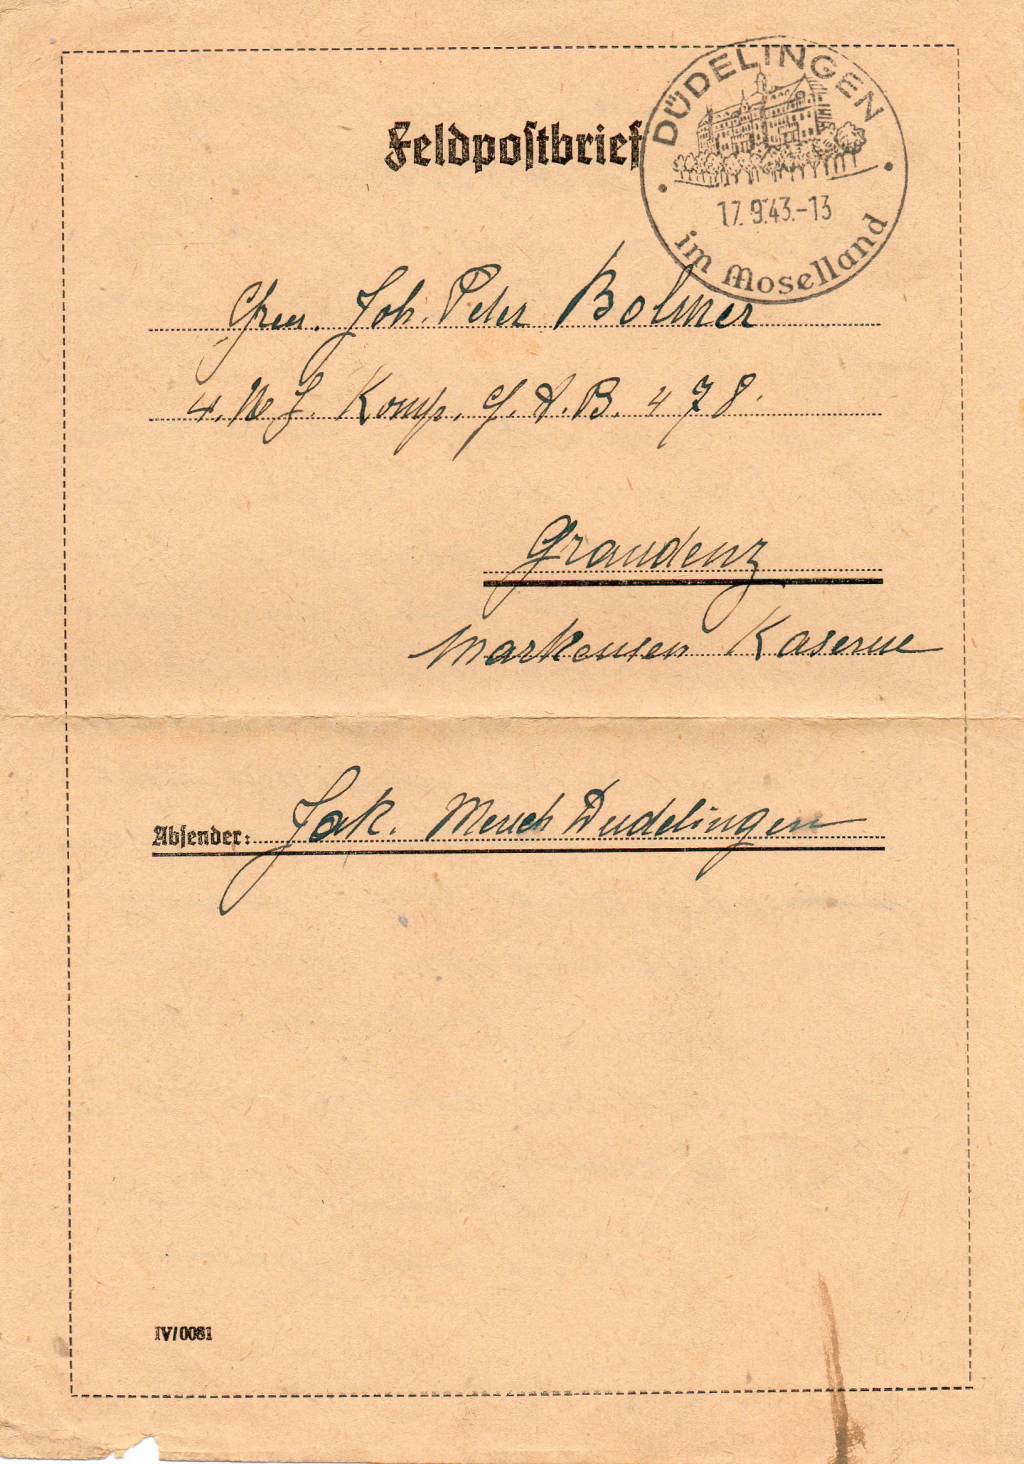 DÜDELINGEN
17.9.43.-13
im Moselland
Feldpostbrief
Gren. Joh. Peter Bolmer
4. Komp. G. A. B. 478.
Graudenz
Kaserne
Absender: Jak. Mersch Dudelingen
IV/0081